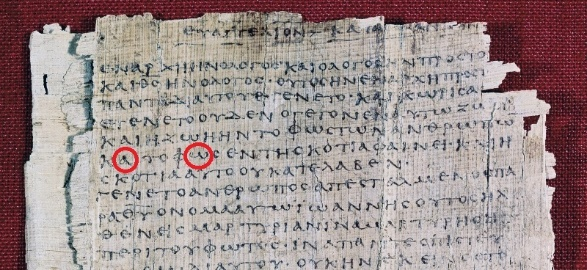 ΕΥΑΓΓΕΛΙΟΝ ΚΑΤΑ
ΕΝ ΑΡΧΗ ΗΝ Ο ΛΟΓΟC ΚΑΙ Ο ΛΟΓΟC ΗΝ ΠΡΟC ΤΟ
ΚΑΙ ΘC ΗΝ Ο ΛΟΓΟC ΟΥΤΟC ΗΝ ΕΝ ΑΡΧΗ ΠΡΟC
ΠΑΝΤΑ ΔΙ ΑΥΤΟΥ ΕΓΕΝΕΤΟ ΚΑΙ ΧΩΡΙC Α
ΕΓΕΝΕΤΟ ΟΥΔΕΝ Ο ΓΕΓΟΝΕΝ ΕΝ ΑΥΤΩ ΖΩ
ΚΑΙ Η ΖΩΗ ΗΝ ΤΟ ΦΩC ΤΩΝ ΑΝΘΡΩΠΩ
ΚΑ ΤΟ ΦΩC ΕΝ ΤΗ CΚΟΤΙΑ ΦΑΙΝΕΙ ΚΑΙ Η
CΚΟΤΙΑ ΑΥΤΟ ΟΥ ΚΑΤΕΛΑΒΕΝ
ΕΓΕΝΕΤΟ ΑΝΘΡΩΠΟC ΑΠΕCΤΑΛΜΕΝΟC ΠΑ
ΡΑ ΘΥ ΟΝΟΜΑ ΑΥΤΩ ΙΩΑΝΝΗC ΟΥΤΟC ΗΛ
ΘΕΝ ΕΙC ΜΑΡΤΥΡΙΑΝ ΙΝΑ ΜΑΡΤΥΡΗCΗ
ΠΕΡΙ ΤΟΥ ΦΩΤΟC ΙΝΑ ΠΑΝΤΕC ΠΙCΤΕΥ
ΔΙ ΑΥΤΟΥ ΟΥΚ ΗΝ ΕΚΕΙ